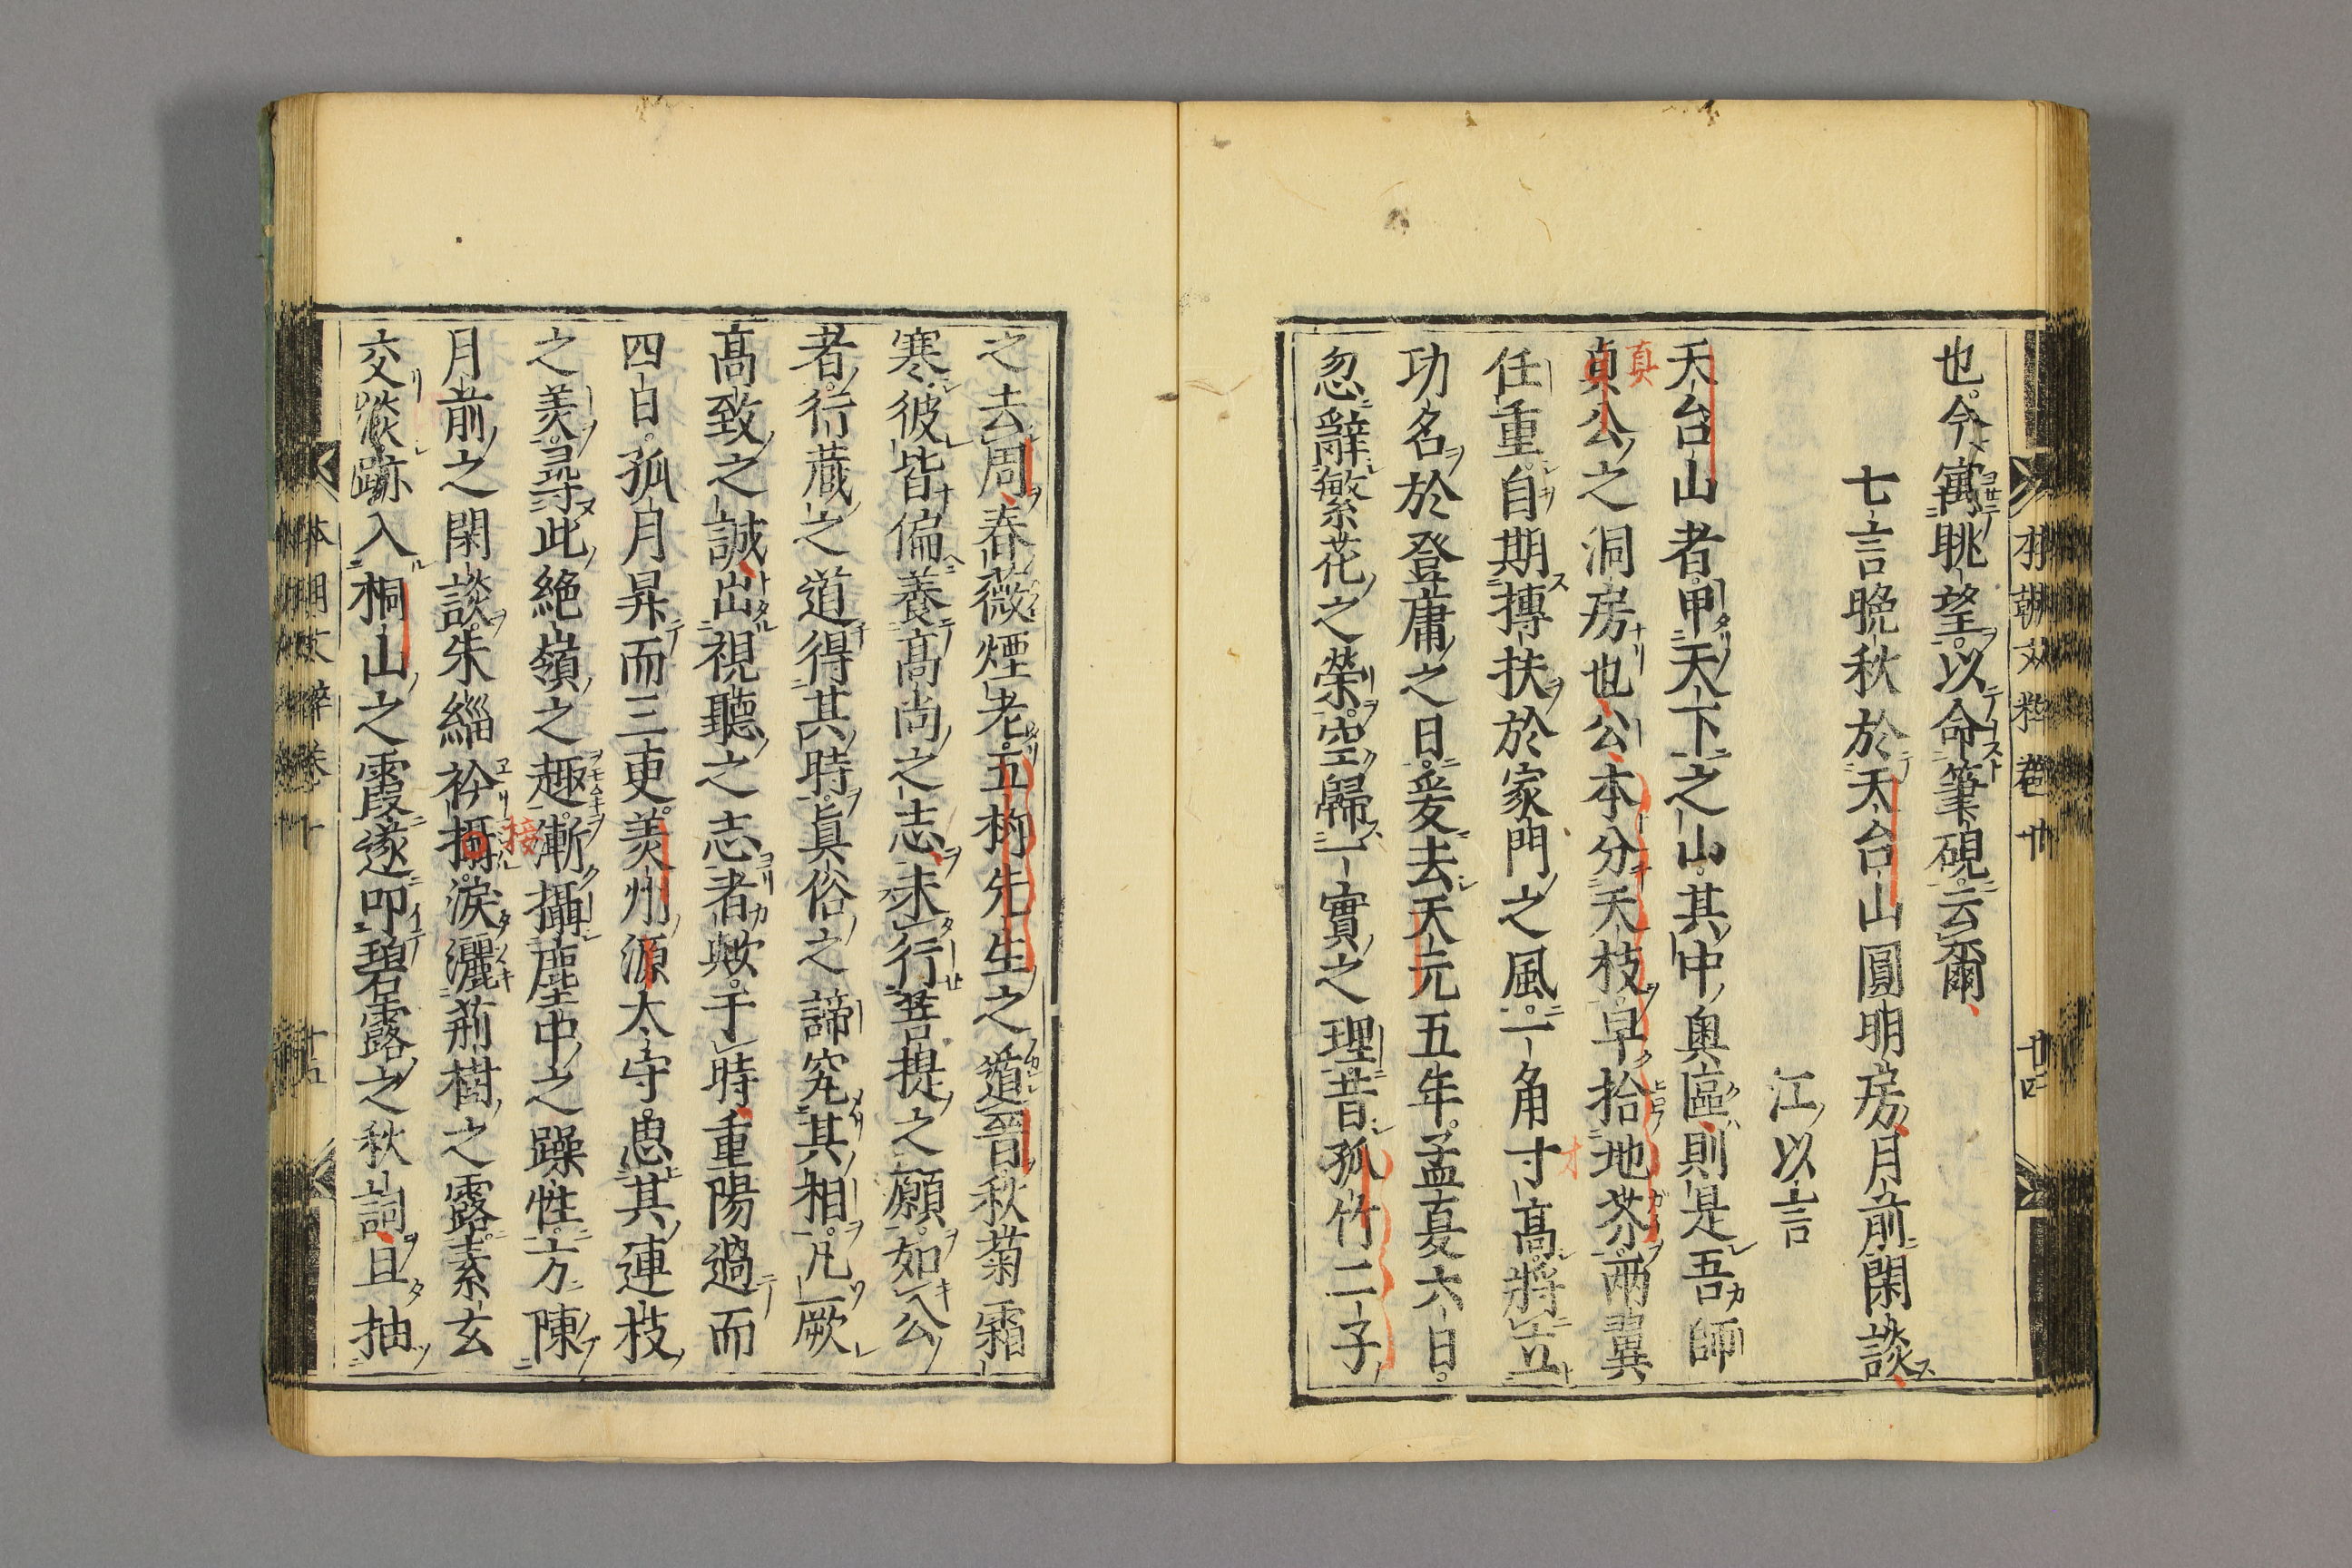 也今寓眺望以命筆硯云爾
七言晩秋於天台山圓明房月前閑談
江以言
天台山者甲天下之山其中奥區則是吾師
貞公之洞房也公本分天枝早拾地芥兩翼
任重自期摶扶於家門之風一角寸高將立
功名於登庸之日爰去天元五年孟夏六日
忽辭繁花之榮空歸一實之理昔孤竹二子
之去周春薇煙老五柳先生之遁晉秋菊霜
寒彼皆偏養高尚之志未行菩提之願如公
者行藏之道得其時眞俗之諦究其相凡厥
高致之誠出視聽之志者歟于時重陽過而
四日孤月昇而三更美州源太守思其連枝
之美尋此絶嶺之趣漸攝塵中之躁性方陳
月前之閑談朱緇衿攝涙灑荊樹之露素玄
交淡跡入桐山之霞遂叩碧露之秋詞且抽
本朝文粹卷十
廿四
真
才
接